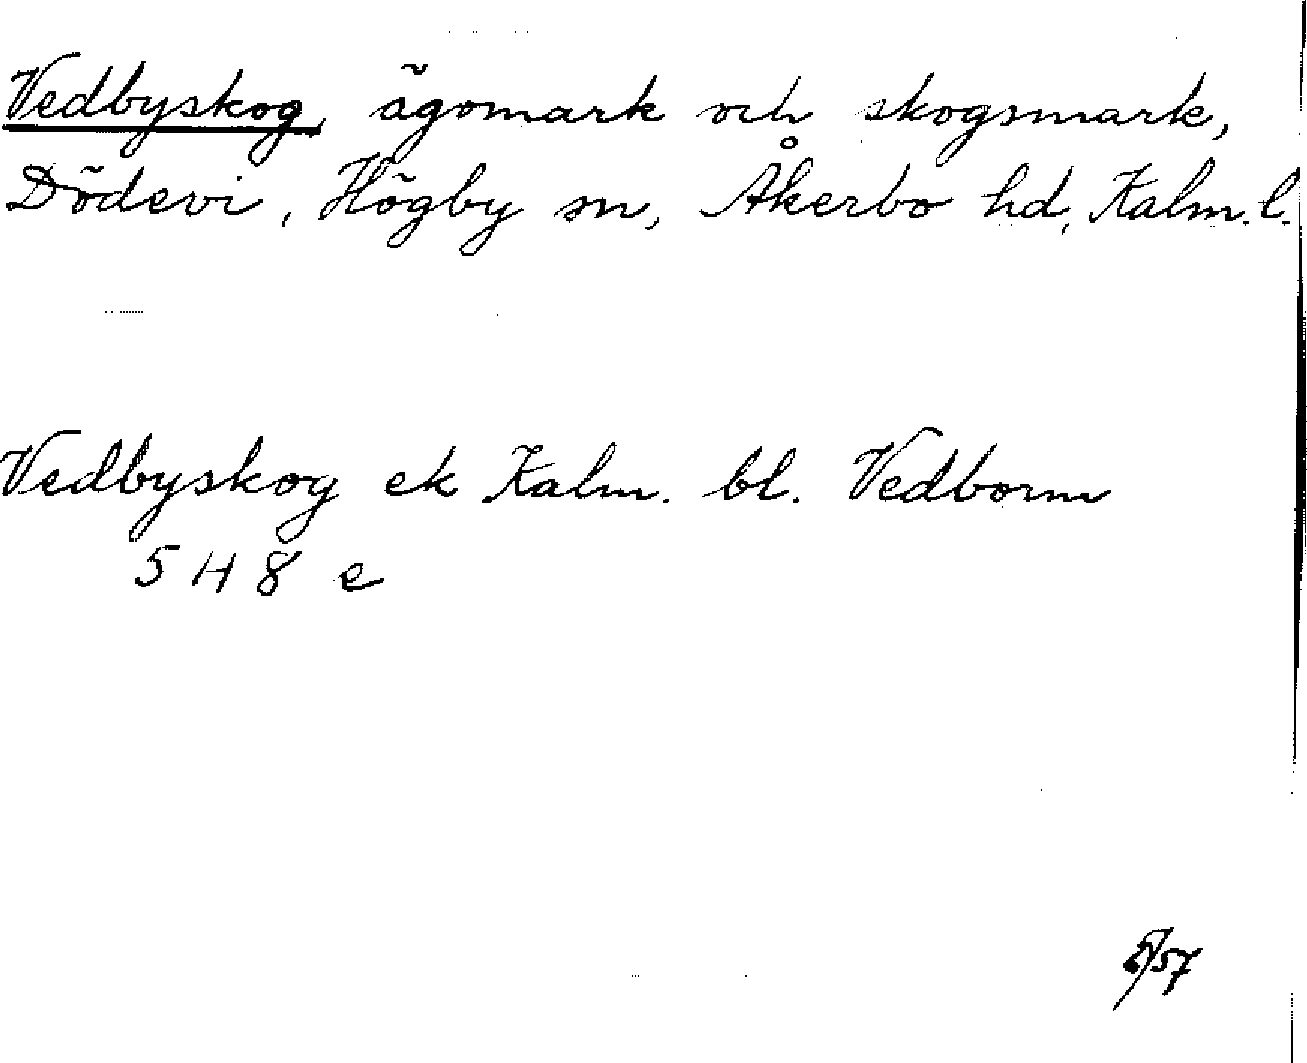 Vedbyskog, ägomark och skogsmark,
Dödevi, Högby sn, Åkerbo hd, Kalm. l.
Vedbyskog ek Kalm. bl. Vedborm
5 H 8 e